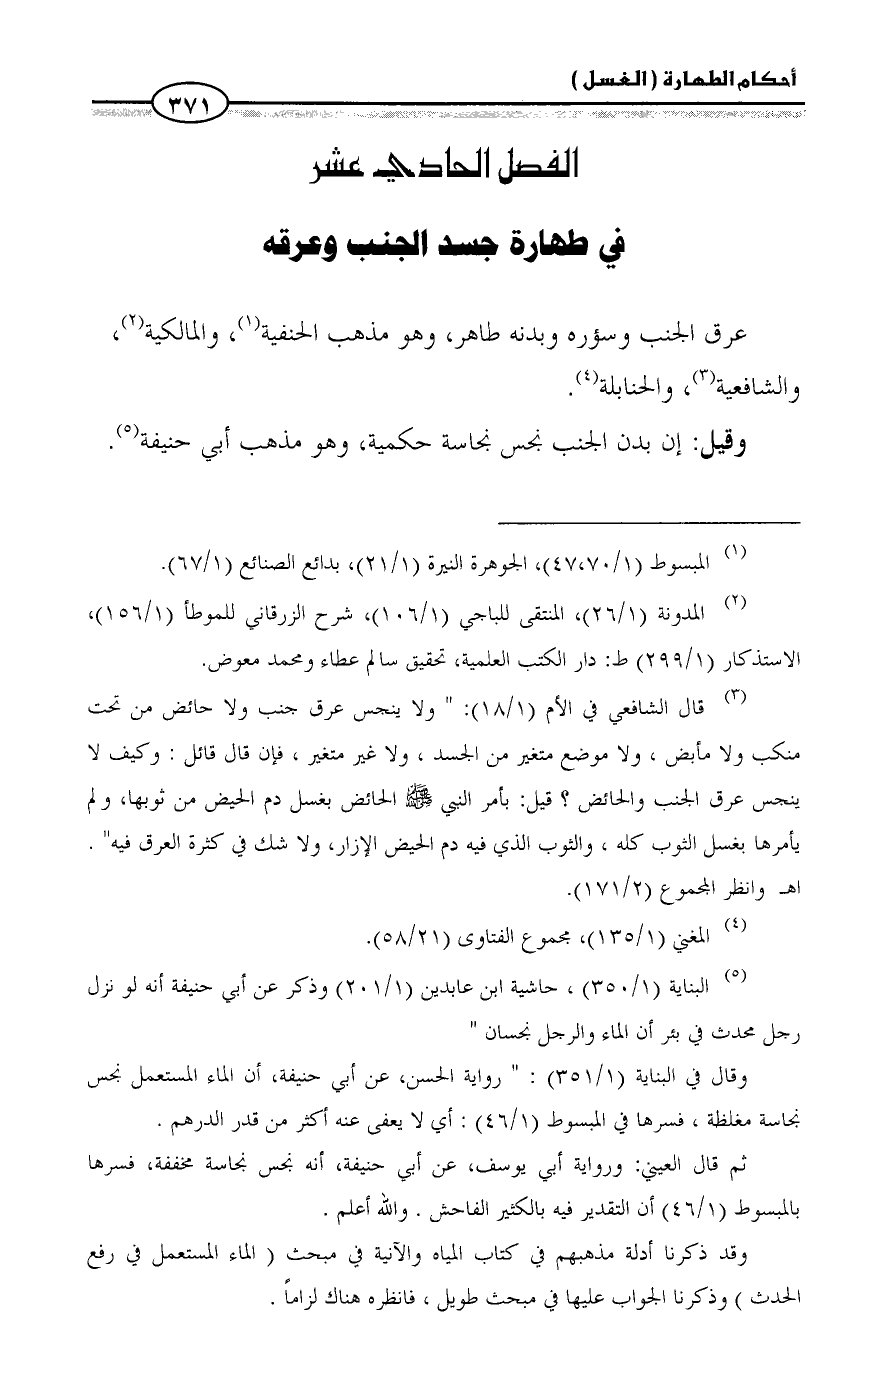 أحكام الطهارة (الغسل)
٣٧١
الفصل الحادي عشر
في طهارة جسد الجنب وعرقه
عرق الجنب وسؤره وبدنه طاهر، وهو مذهب الحنفية(١)، والمالكية(٢)،
والشافعية(٣)، والحنابلة(٤).
وقيل: إن بدن الجنب نجس نجاسة حكمية، وهو مذهب أبي حنيفة(٥).
(١) المبسوط (٤٧،٧٠/١)، الجوهرة النيرة (٢١/١)، بدائع الصنائع (٦٧/١).
(٢) المدونة (٢٦/١)، المنتقى للباجي (١٠٦/١)، شرح الزرقاني للموطأ (١٥٦/١)،
الاستذكار (٢٩٩/١) ط: دار الكتب العلمية، تحقيق سالم عطاء ومحمد معوض.
(٣) قال الشافعي في الأم (١٨/١): " ولا ينجس عرق جنب ولا حائض من تحت
منكب ولا مأبض ، ولا موضع متغير من الجسد ، ولا غير متغير ، فإن قال قائل : وكيف لا
ينجس عرق الجنب والحائض ؟ قيل: بأمر النبي ﷺ الحائض بغسل دم الحيض من ثوبها، ولم
يأمرها بغسل الثوب كله ، والثوب الذي فيه دم الحيض الإزار، ولا شك في كثرة العرق فيه" .
اهـ وانظر المجموع (١٧١/٢).
(٤) المغني (١٣٥/١)، مجموع الفتاوى (٥٨/٢١).
(٥) البناية (٣٥٠/١) ، حاشية ابن عابدين (٢٠١/١) وذكر عن أبي حنيفة أنه لو نزل
رجل محدث في بئر أن الماء والرجل نجسان "
وقال في البناية (٣٥١/١) : " رواية الحسن، عن أبي حنيفة، أن الماء المستعمل نجس
نجاسة مغلظة ، فسرها في المبسوط (٤٦/١) : أي لا يعفى عنه أكثر من قدر الدرهم .
ثم قال العيني: ورواية أبي يوسف، عن أبي حنيفة، أنه نجس نجاسة مخففة، فسرها
بالمبسوط (٤٦/١) أن التقدير فيه بالكثير الفاحش . والله أعلم .
وقد ذكرنا أدلة مذهبهم في كتاب المياه والآنية في مبحث ( الماء المستعمل في رفع
الحدث ) وذكرنا الجواب عليها في مبحث طويل ، فانظره هناك لزاماً .